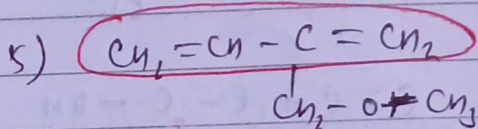 5) CH₂ = CH - C = CH₂
CH₂ - O - CH₃